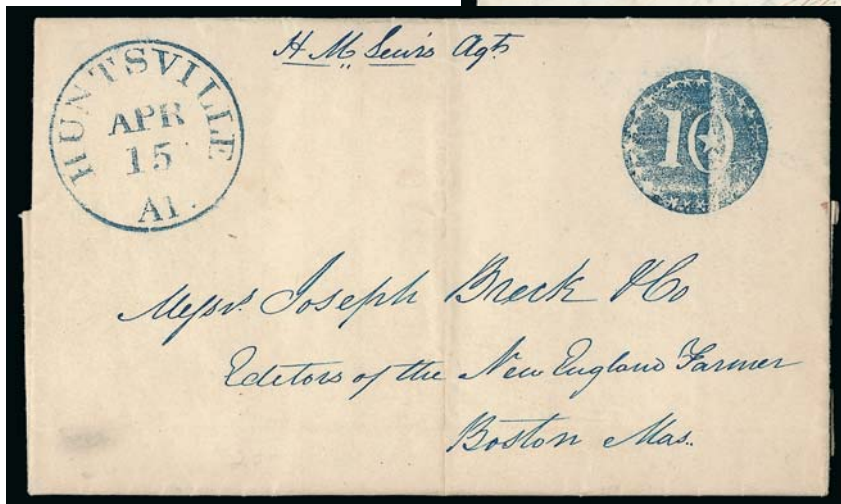 H. M. Lewis Agt
HUNTSVILLE
APR
15
Al.
10
Messrs. Joseph Breck & Co
Editors of the New England Farmer
Boston Mas.